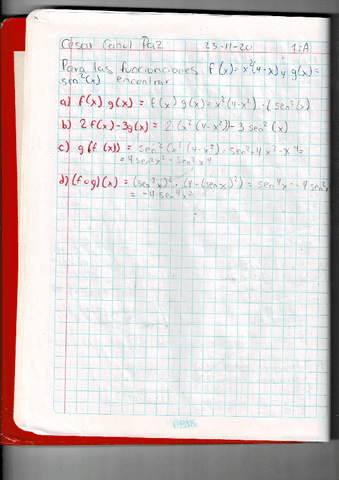 César Canul Paz 23-11-20 1:A
Para las funcionciones f(x)=x²(4-x) y g(x)=
sen²(x) encontrar
a) f(x) g(x) = f(x) g(x) = x²(4-x²) · (sen²(x)
b) 2f(x)-3g(x) = 2(x²(4-x²))-3 sen²(x)
c) g(f(x)) = sen²(x²(4-x²) = sen² 4x²-x⁴=
= 4sen²x² - sen²x⁴
d) (f∘g)(x) = (sen²x)² · (4-(senx)²) = sen⁴x · -4sen²
= -4sen⁴x²